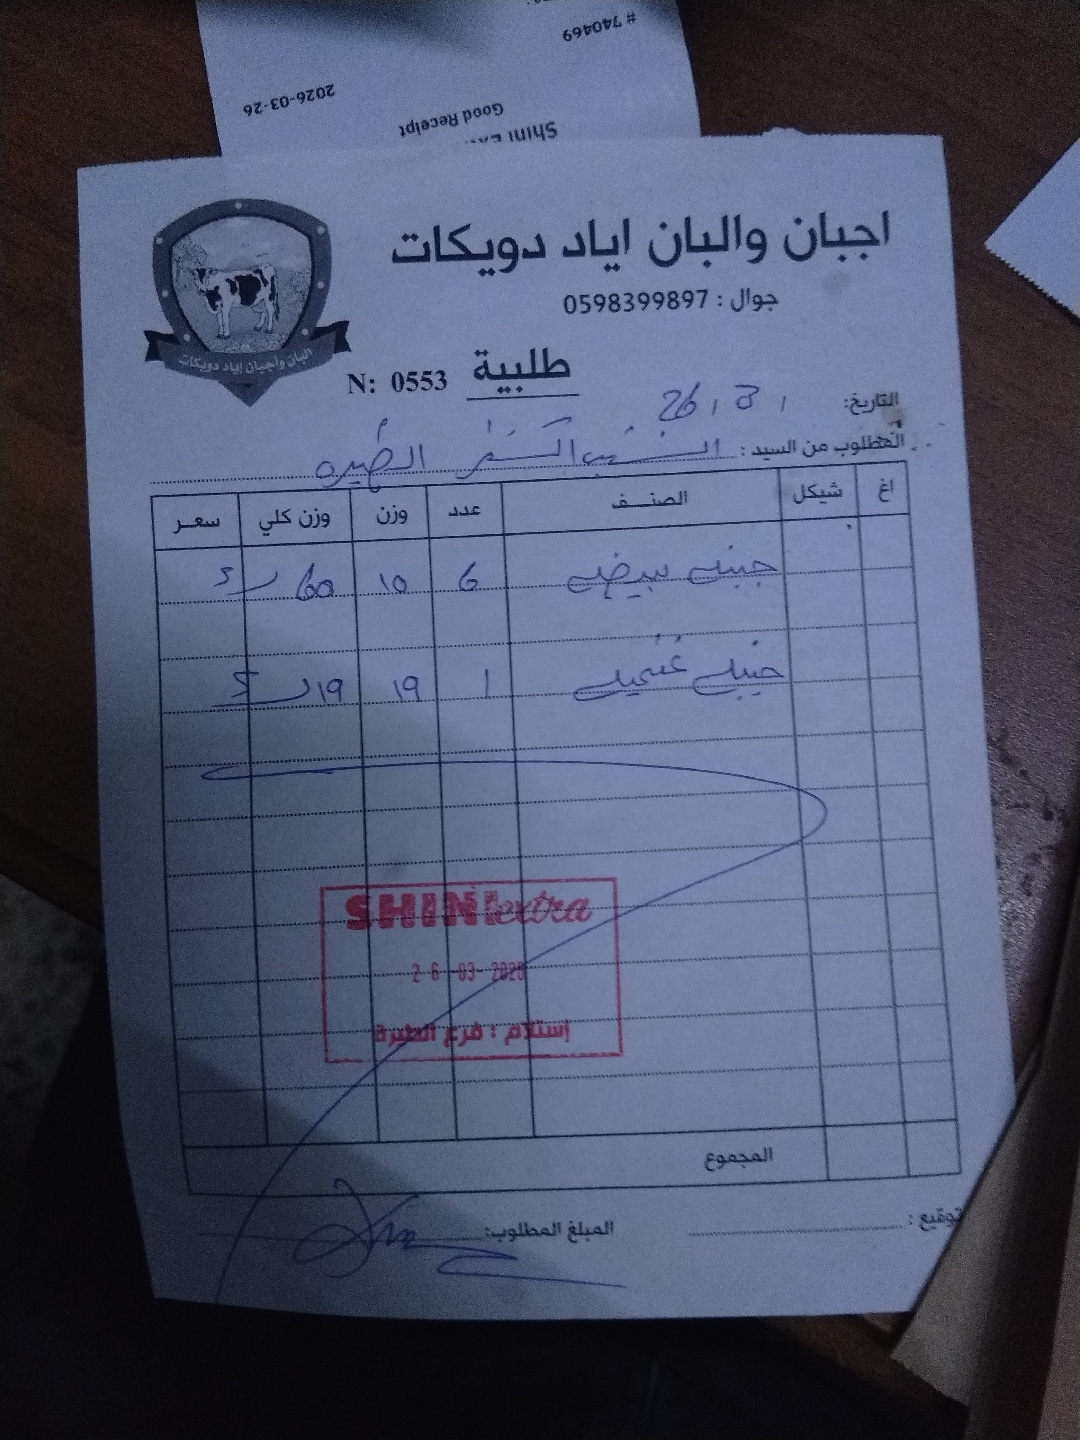 # 740469
2026-03-26
Good Receipt
Shini
اجبان والبان اياد دويكات
جوال : 0598399897
البان واجبان إياد دويكات
طلبية
N: 0553
التاريخ: 26 / 3 /
المطلوب من السيد : الطيره
اغ شيكل الصنف عدد وزن وزن كلي سعر
جبنه بيضه 6 10 60
جبنه غنميه 1 19 19
SHINI extra
26-03-2026
إستلام : فرع الطيرة
المجموع
توقيع :
المبلغ المطلوب: